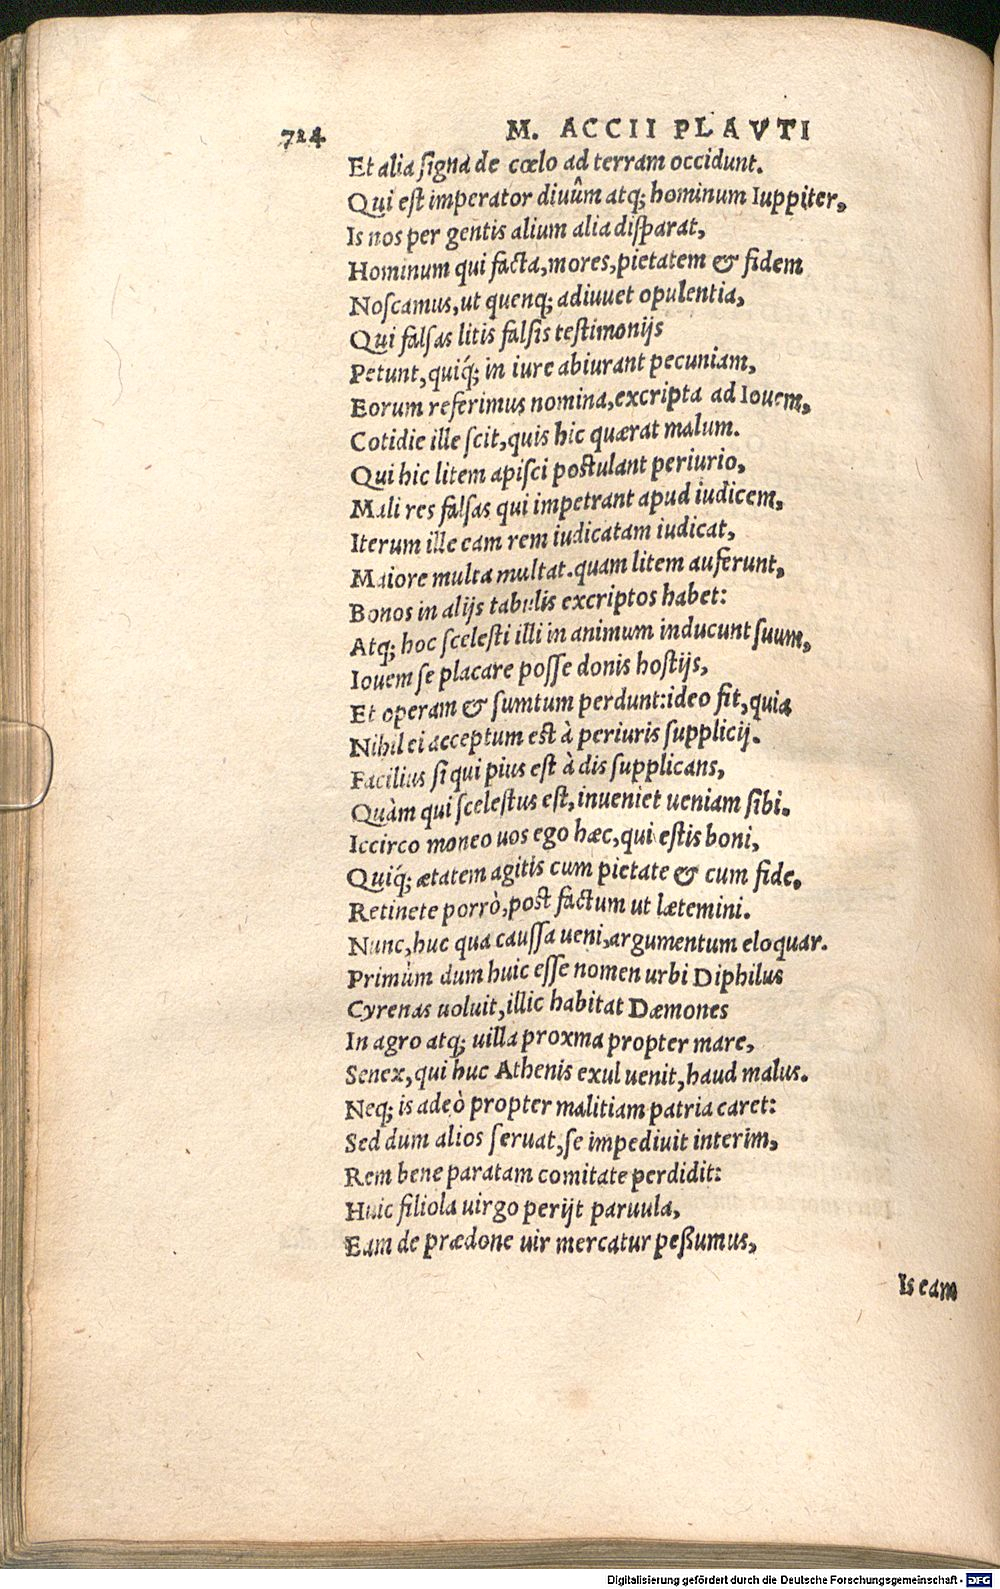 724 M. ACCII PLAVTI
Et alia signa de cœlo ad terram occidunt.
Qui est imperator diuûm atq; hominum Iuppiter,
Is nos per gentis alium alia disparat,
Hominum qui facta, mores, pietatem & fidem
Noscamus, ut quenq; adiuuet opulentia,
Qui falsas litis falsis testimonijs
Petunt, quiq́; in iure abiurant pecuniam,
Eorum referimus nomina, excripta ad Iouem,
Cotidie ille scit, quis hic quærat malum.
Qui hic litem apisci postulant periurio,
Mali res falsas qui impetrant apud iudicem,
Iterum ille eam rem iudicatam iudicat,
Maiore multa multat. quam litem auferunt,
Bonos in alijs tabulis excriptos habet:
Atq; hoc scelesti illi in animum inducunt suum,
Iouem se placare posse donis hostijs,
Et operam & sumtum perdunt: ideo fit, quia
Nihil ei acceptum est à periuris supplicij.
Facilius si qui pius est à dis supplicans,
Quàm qui scelestus est, inueniet ueniam sibi.
Iccirco moneo uos ego hæc, qui estis boni,
Quiq́; ætatem agitis cum pietate & cum fide.
Retinete porrò, post factum ut lætemini.
Nunc, huc qua caussa ueni, argumentum eloquar.
Primùm dum huic esse nomen urbi Diphilus
Cyrenas uoluit, illic habitat Dæmones
In agro atq; uilla proxma propter mare,
Senex, qui huc Athenis exul uenit, haud malus.
Neq; is adeò propter malitiam patria caret:
Sed dum alios seruat, se impediuit interim,
Rem bene paratam comitate perdidit:
Huic filiola uirgo perijt paruula,
Eam de prædone uir mercatur peßumus,
Is eam
Digitalisierung gefördert durch die Deutsche Forschungsgemeinschaft - DFG